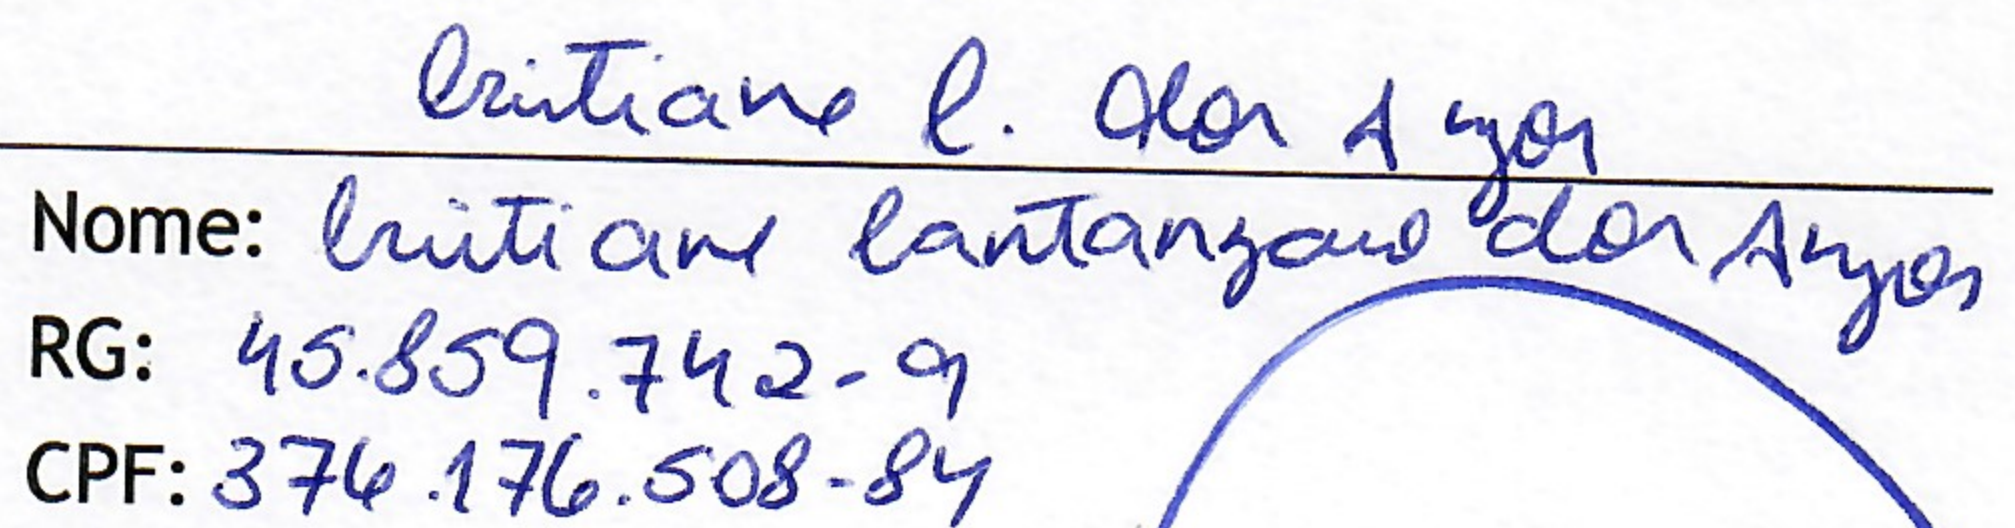 Cristiane C. dos Anjos
Nome: Cristiane Cantanzaro dos Anjos
RG: 45.859.742-9
CPF: 376.176.508-84